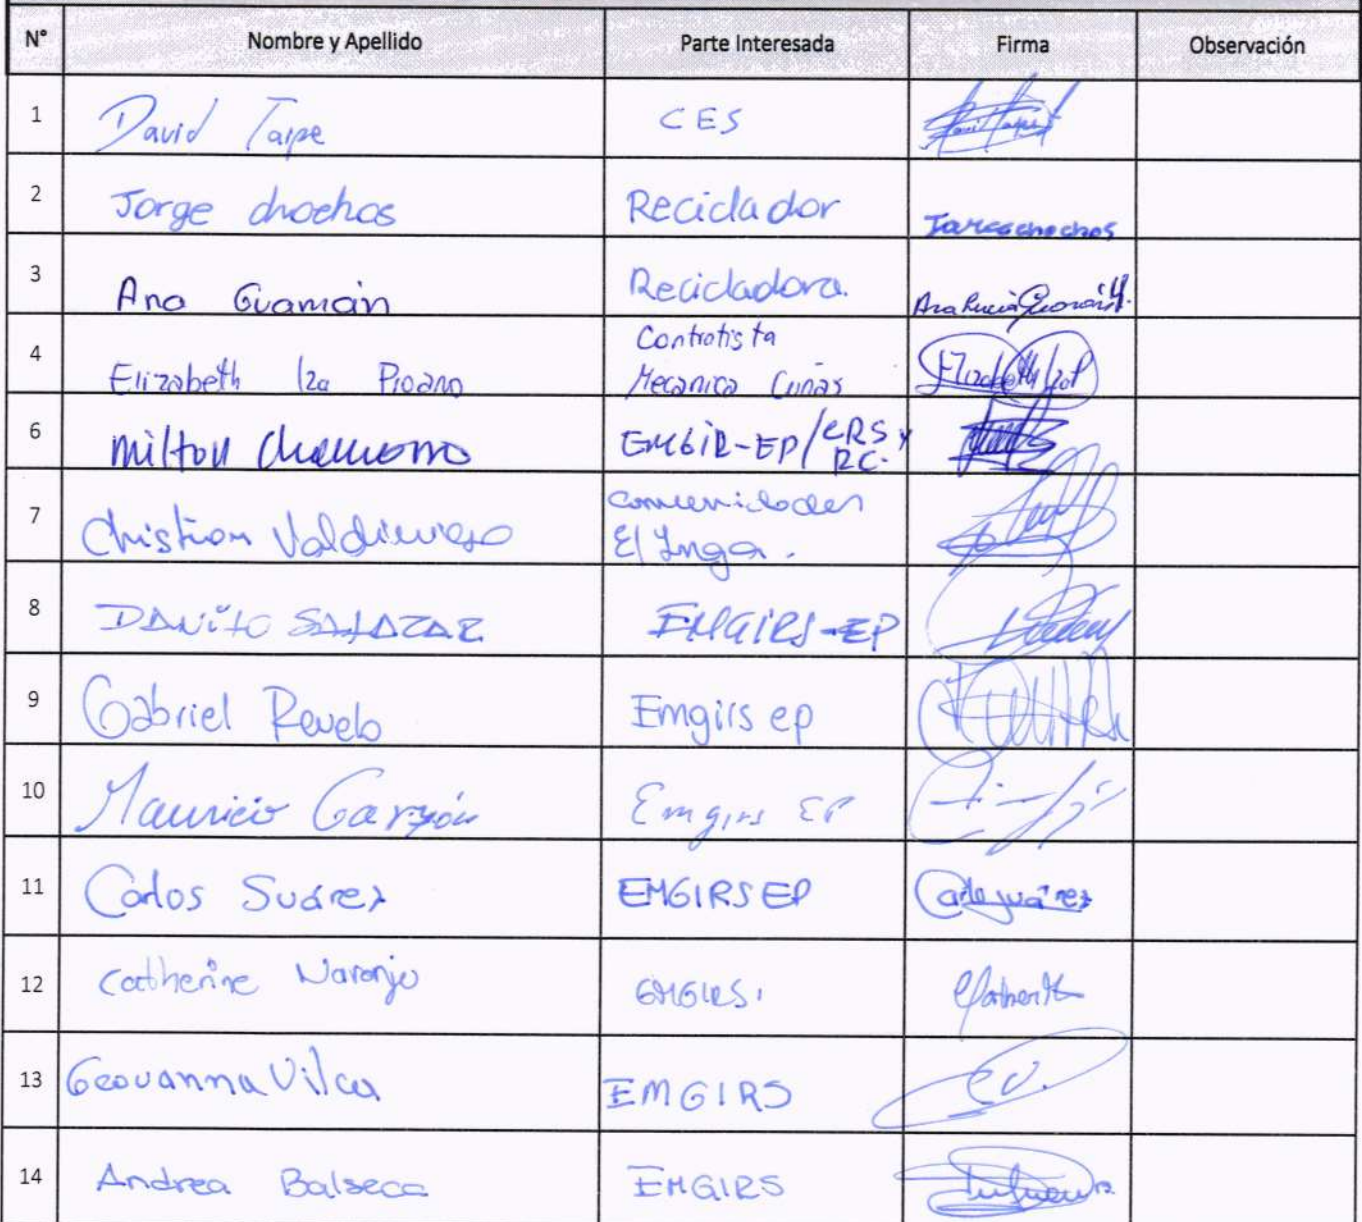 N° Nombre y Apellido Parte Interesada Firma Observación
1 David Taipe CES
2 Jorge chochos Reciclador Jorge chochos
3 Ana Guamán Recicladora. Ana Lucía Guamán
4 Elizabeth Iza Proaño Contratista
Mecanica Cunas
6 Milton Chamorro EMGIR-EP/ERS y
RC.
7 Christian Valdivieso Comunidades
El Inga.
8 DANilO SALAZAR EMGIRS-EP
9 Gabriel Revelo Emgirs ep
10 Mauricio Garzón Emgirs EP
11 Carlos Suárez EMGIRS EP Carlos Suárez
12 Catherine Naranjo EMGIRS.
13 Geovanna Vilca EMGIRS
14 Andrea Balseca EMGIRS